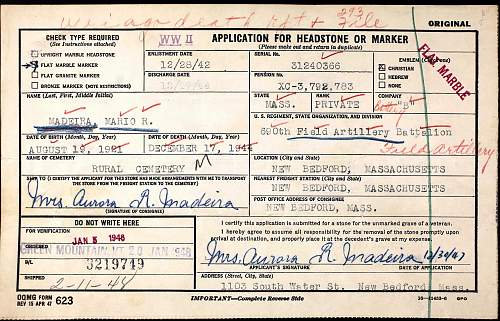 WW II
293
File
ORIGINAL
CHECK TYPE REQUIRED
(See Instructions attached)
UPRIGHT MARBLE HEADSTONE
FLAT MARBLE MARKER
FLAT GRANITE MARKER
BRONZE MARKER
WW II
APPLICATION FOR HEADSTONE OR MARKER
(Please make out and return in duplicate)
ENLISTMENT DATE
12/28/42
SERIAL No.
31240366
EMBLEM (Check one)
CHRISTIAN
HEBREW
NONE
FLAT MARBLE
DISCHARGE DATE
PENSION No.
XC-3,792,783
NAME (Last, First, Middle Initial)
MADEIRA, MARIO R.
STATE
MASS.
RANK
PRIVATE
COMPANY
"B"
DATE OF BIRTH (Month, Day, Year)
AUGUST 19, 1921
DATE OF DEATH (Month, Day, Year)
DECEMBER 17, 1944
U. S. REGIMENT, STATE ORGANIZATION, AND DIVISION
690th Field Artillery Battalion
Field Artillery
NAME OF CEMETERY
RURAL CEMETERY
LOCATION (City and State)
NEW BEDFORD, MASSACHUSETTS
SHIP TO (I CERTIFY THE APPLICANT FOR THIS STONE HAS MADE ARRANGEMENTS WITH ME TO TRANSPORT THE STONE FROM THE FREIGHT STATION TO THE CEMETERY)
Mrs. Aurora R. Madeira
(SIGNATURE OF CONSIGNEE)
NEAREST FREIGHT STATION (City and State)
NEW BEDFORD, MASSACHUSETTS
POST OFFICE ADDRESS OF CONSIGNEE
NEW BEDFORD, MASS.
DO NOT WRITE HERE
FOR VERIFICATION
JAN 5 1948
ORDERED
GREEN MOUNTAIN, VT 20 JAN 1948
B/L
3219749
SHIPPED
I certify this application is submitted for a stone for the unmarked grave of a veteran.
I hereby agree to assume all responsibility for the removal of the stone promptly upon arrival at destination, and properly place it at the decedent's grave at my expense.
Mrs. Aurora R. Madeira 12/30/47
APPLICANT'S SIGNATURE DATE OF APPLICATION
ADDRESS (Street, City, State)
1103 South Water St. New Bedford Mass.
OQMG FORM
REV 15 APR 47 623
IMPORTANT—Complete Reverse Side
GPO